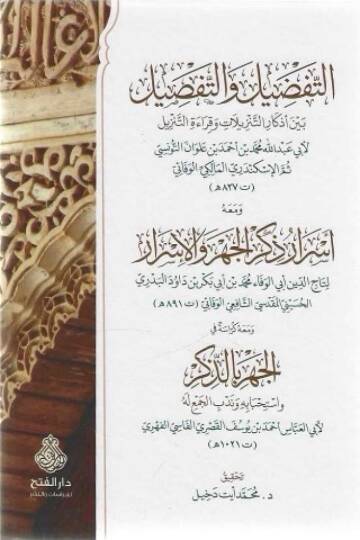 التفضيل والتفصيل
بين أذكار التنزيلات وقراءة التنزيل
لأبي عبد الله محمد بن أحمد بن علوان التونسي
ثم الإسكندري المالكي الوفائي
(ت ٨٢٧ هـ)
ومعه
أسرار ذكر الجهر والإسرار
لتاج الدين أبي الوفاء محمد بن أبي بكر بن داود البدري
الحسيني المقدسي الشافعي الوفائي (ت ٨٩١ هـ)
ومعه كراسة في
الجهر بالذكر
واستحبابه وندب الجمع له
لأبي العباس أحمد بن يوسف القصري الفاسي الفهري
(ت ١٠٢١ هـ)
تحقيق
د. محمد آيت دخيل
دار الفتح
للدراسات والنشر